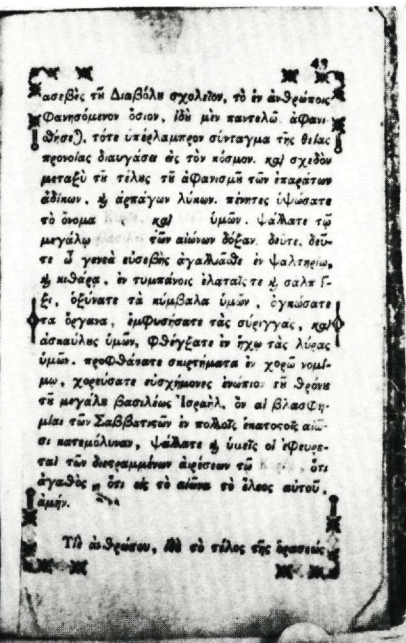 49
ασεβὲς τοῦ Διαβόλου σχολεῖον, τὸ ἐν ἀνθρώποις
Φανησόμενον ὅσιον, ἰδοὺ μὲν παντελῶ ἀφανι-
τότε ὑπέρλαμπρον σύνταγμα τῆς θείας
προνοίας διαυγάσα ὡς τὸν κόσμον. καὶ σχεδὸν
μεταξὺ τοῦ τέλους τοῦ ἀφανισμοῦ τῶν ἐπαράτων
ἀδίκων, καὶ ἁρπάγων λύκων. πένητες ὑψώσατε
τὸ ὄνομα καὶ ὑμῶν. ψάλλατε τῷ
μεγάλῳ τῶν αἰώνων δόξαν. δεῦτε, δεῦ-
τε ὦ γενεὰ εὐσεβὴς ἀγαλλιᾶσθε ἐν ψαλτηρίῳ,
καὶ κιθάρᾳ, ἐν τυμπάνοις ἐλαταῖς τε καὶ σαλπιγ-
ξι, ὀξύνατε τὰ κύμβαλα ὑμῶν, ὀγκώσατε
τα ὄργανα, ἐμφυσήσατε τὰς σύριγγας, καὶ
ἀσκαύλης ὑμῶν, φθέγξατε ἐν ἤχῳ τὰς λύρας
ὑμῶν. προφθάσατε σκιρτήματα ἐν χορῷ νομί-
μῳ, χορεύσατε εὐσχήμονες ἐνώπιον τοῦ θρόνου
τοῦ μεγάλου βασιλέως Ἰσραὴλ, ὃν αἱ βλασφη-
μίαι τῶν Σαββατικῶν ἐν πολλοῖς ἑκατοστοῖς αἰῶ-
σι κατεμόλυναν, ψάλλατε καὶ ὑμεῖς οἱ ἐφευρε-
ταὶ τῶν διεστραμμένων αἱρέσεων τῷ ὅτι
ἀγαθὸς, ὅτι εἰς τὸ αἰῶνα τὸ ἔλεος αὐτοῦ.
ἀμήν.
Υἱὲ ἀνθρώπου, ἰδοὺ τὸ τέλος τῆς ὁράσεώς